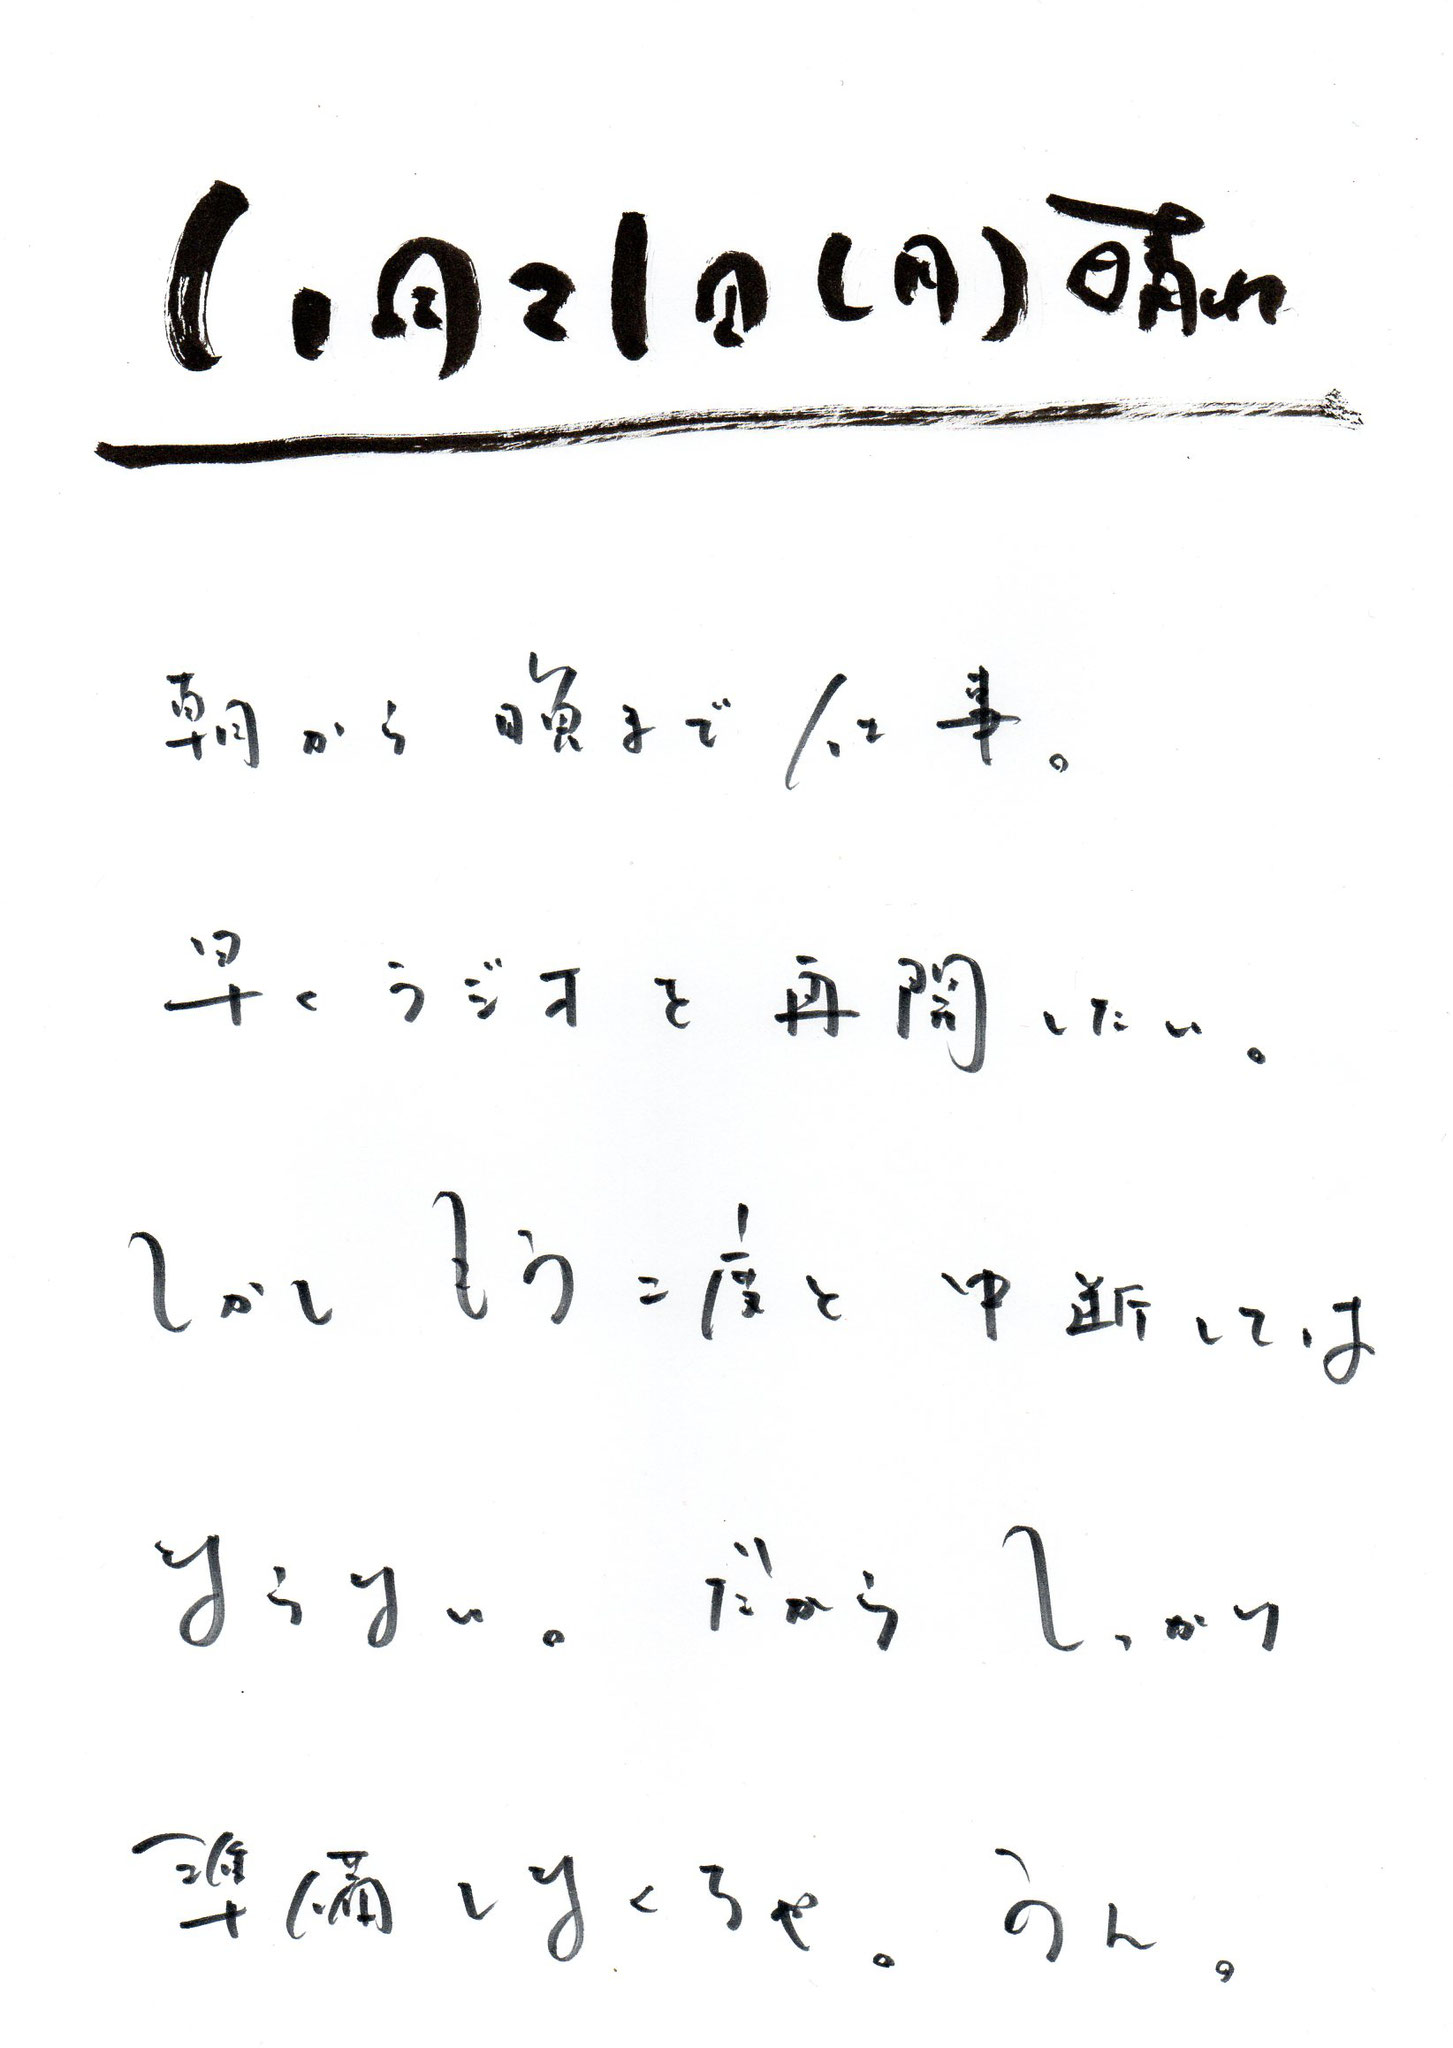 11月21日(月)晴れ
朝から晩まで仕事。
早くラジオを再開したい。
しかしもう二度と中断しては
ならない。だからしっかり
準備しなくちゃ。うん。